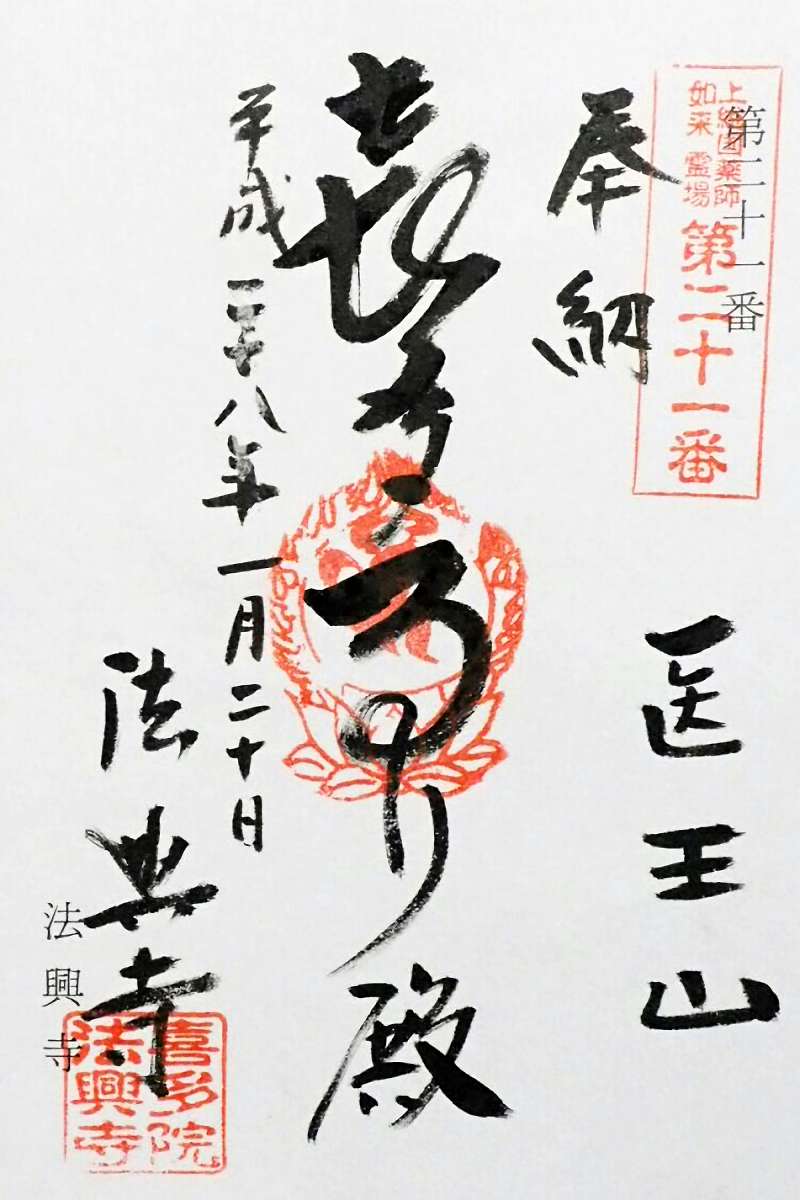 第二十一番
上総国薬師
如来霊場
第二十一番
奉納
医王山
殿
平成二十八年一月二十日
法興寺
法興寺
喜多院
法興寺